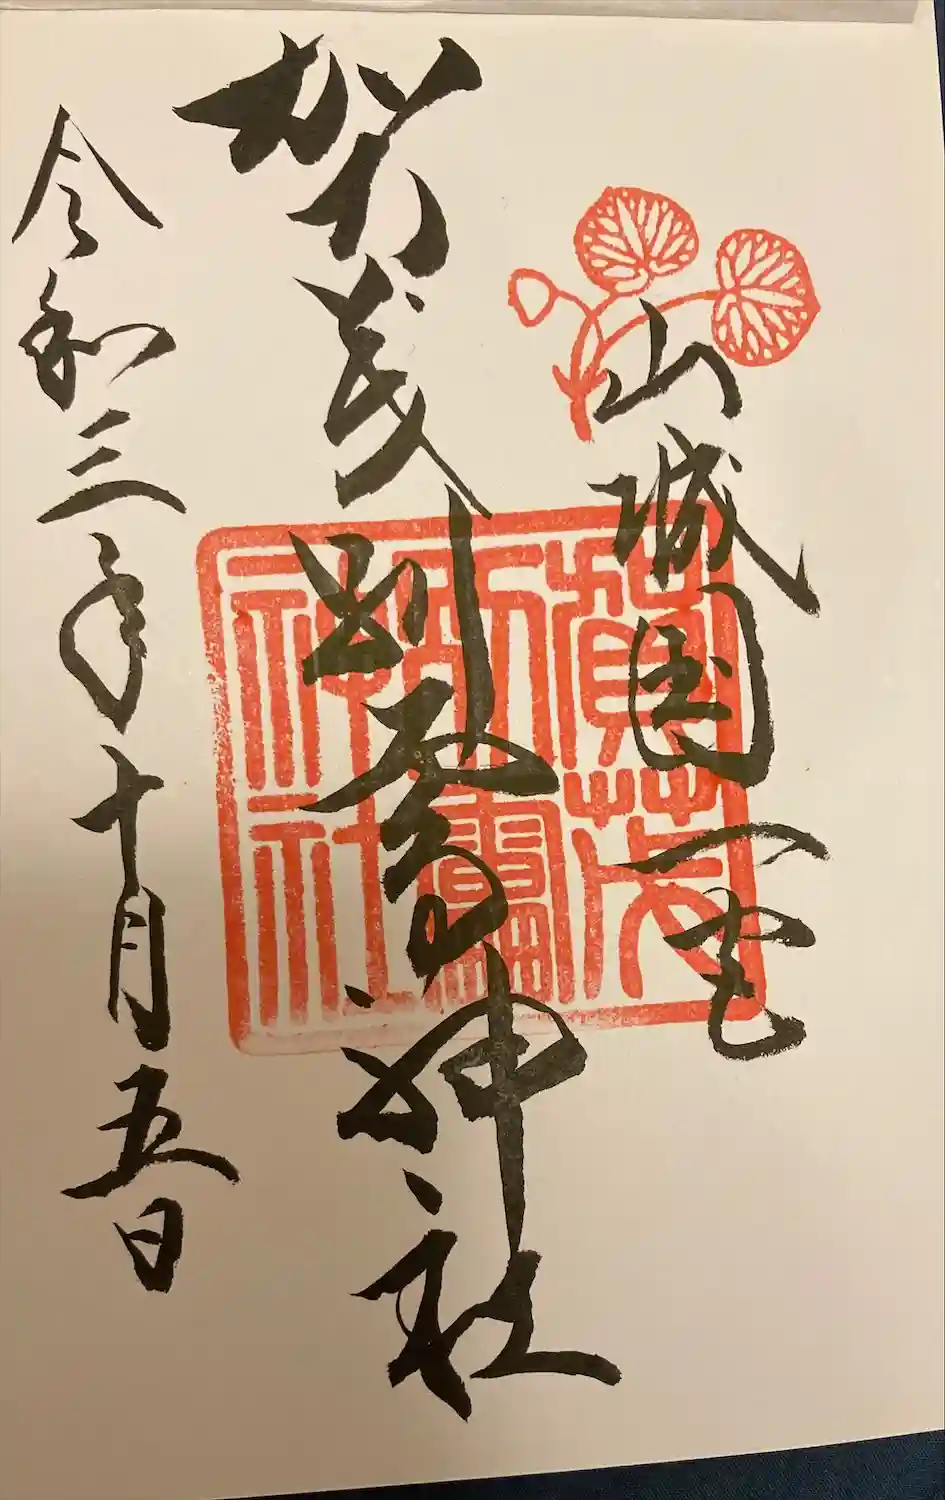 山城国一宮
賀茂別雷神社
令和三年十月五日
賀茂
別雷
神社